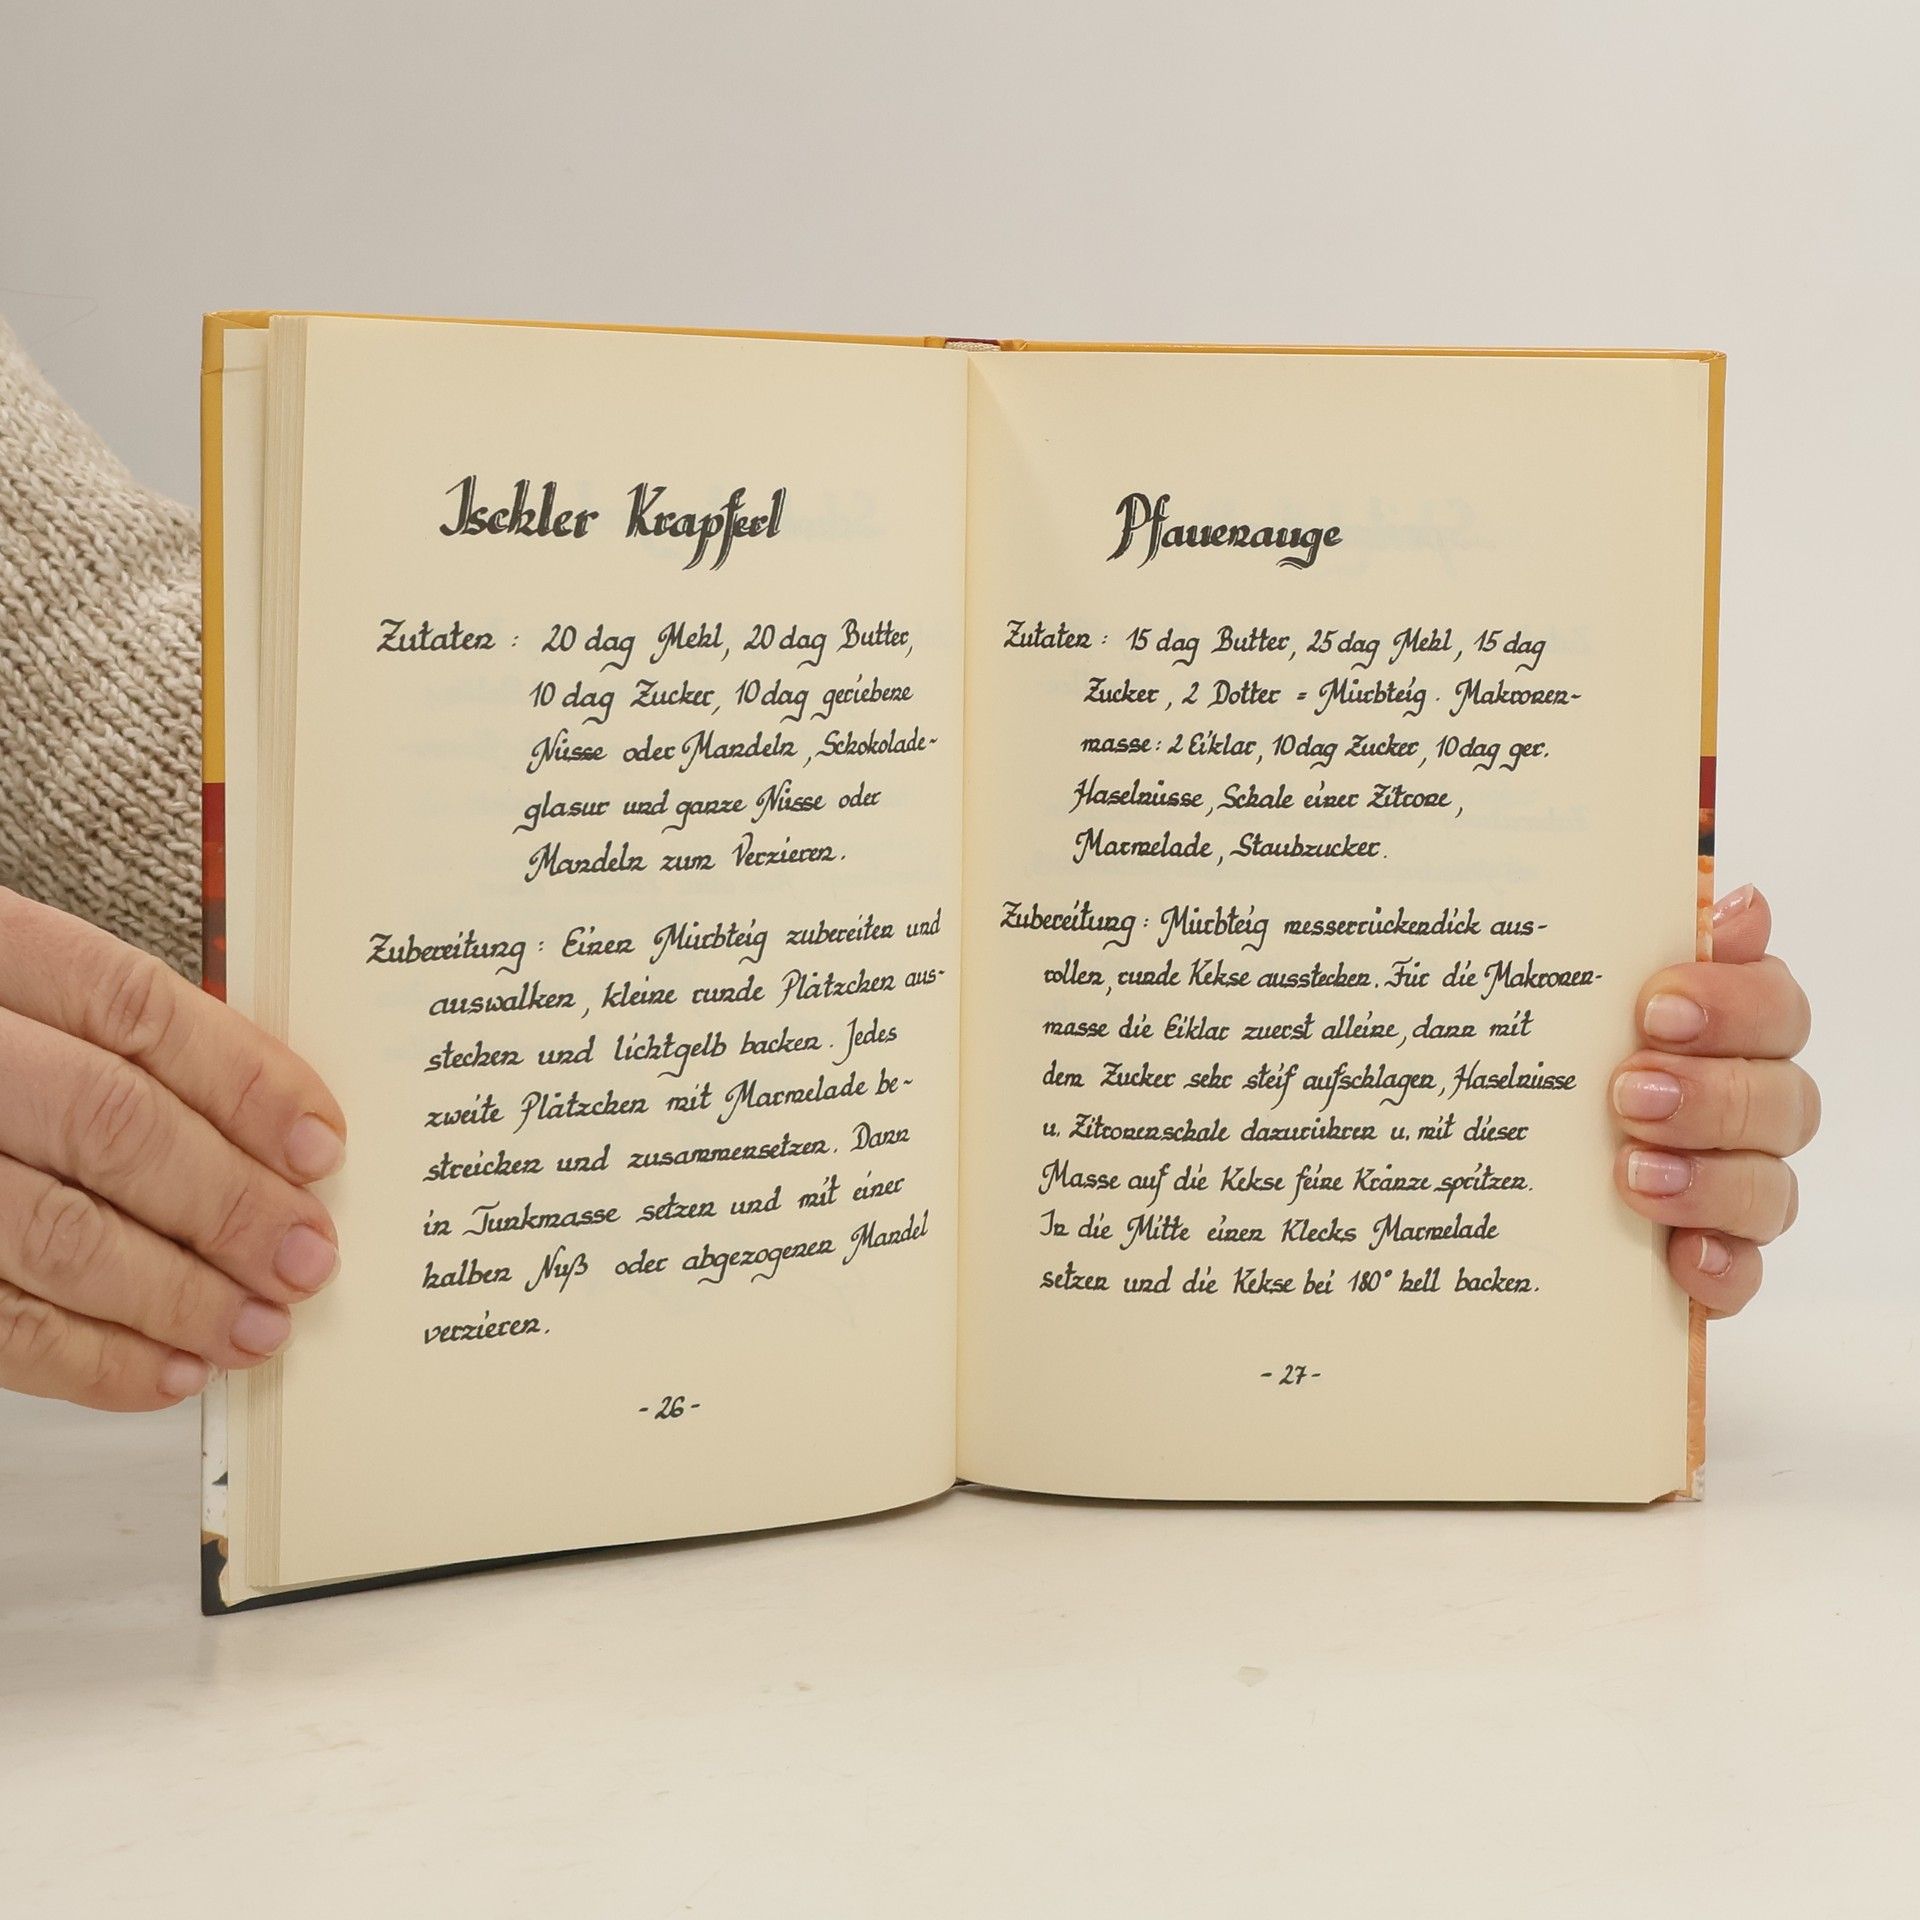 Ischler Krapferl
Zutaten : 20 dag Mehl, 20 dag Butter,
10 dag Zucker, 10 dag geriebene
Nüsse oder Mandeln, Schokolade-
glasur und ganze Nüsse oder
Mandeln zum Verzieren.
Zubereitung : Einen Mürbteig zubereiten und
auswalken, kleine runde Plätzchen aus-
stechen und lichtgelb backen. Jedes
zweite Plätzchen mit Marmelade be-
streichen und zusammensetzen. Dann
in Tunkmasse setzen und mit einer
halben Nuß oder abgezogenen Mandel
verzieren.
- 26 -
Pfauenauge
Zutaten : 15 dag Butter, 25 dag Mehl, 15 dag
Zucker, 2 Dotter = Mürbteig. Makronen-
masse: 2 Eiklar, 10 dag Zucker, 10 dag ger.
Haselnüsse, Schale einer Zitrone,
Marmelade, Staubzucker.
Zubereitung : Mürbteig messerrückendick aus-
rollen, runde Kekse ausstechen. Für die Makronen-
masse die Eiklar zuerst alleine, dann mit
dem Zucker sehr steif aufschlagen, Haselnüsse
u. Zitronenschale dazurühren u. mit dieser
Masse auf die Kekse feine Kränze spritzen.
In die Mitte einen Klecks Marmelade
setzen und die Kekse bei 180° hell backen.
- 27 -